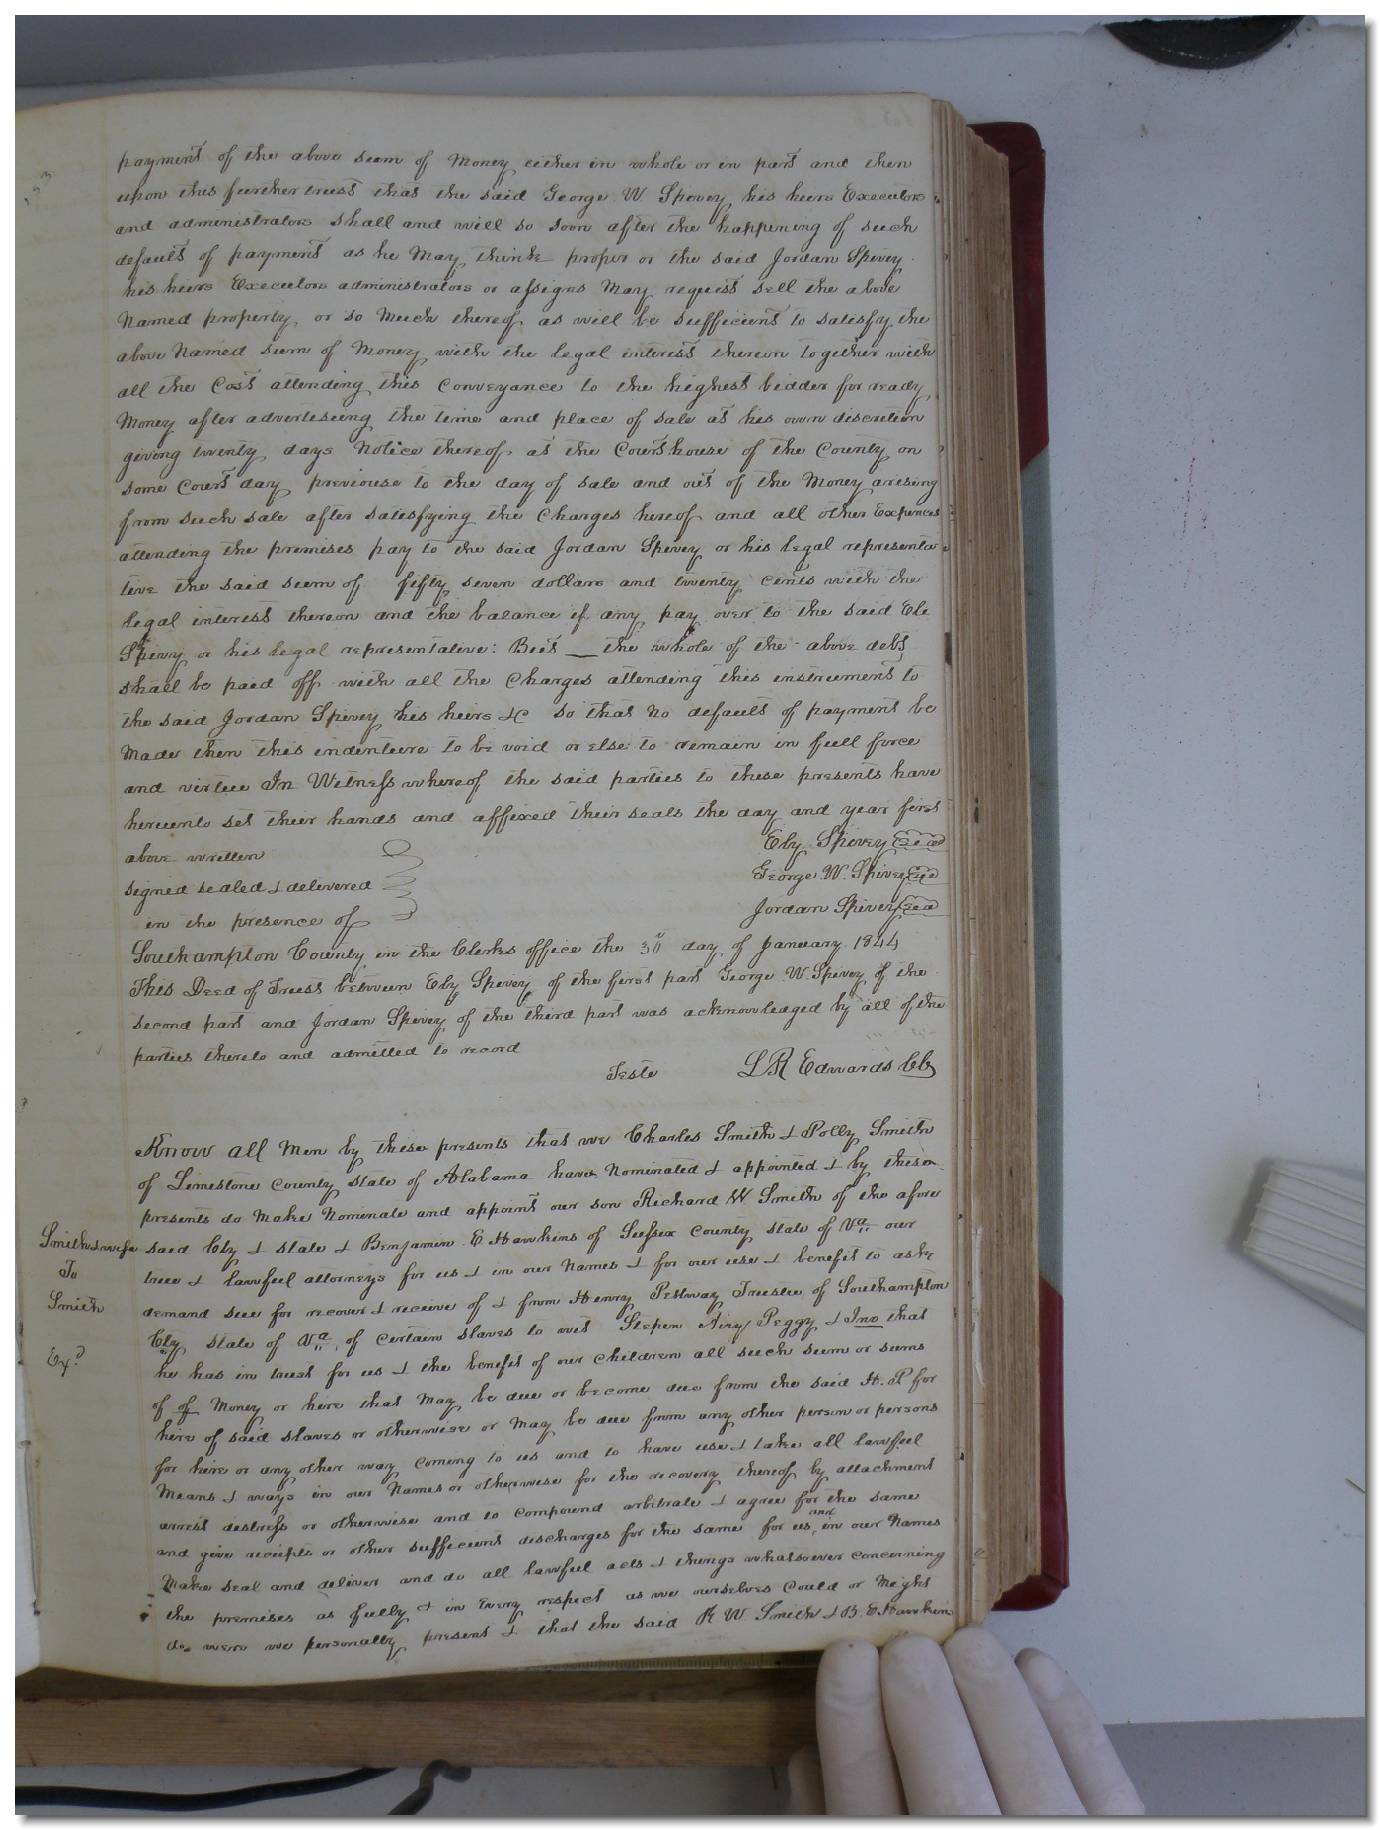 payment of the above sum of Money either in whole or in part and then
upon this further trust that the said George W. Spivey his heirs Executors
and administrators shall and will so soon after the happening of such
default of payment as he May think proper or the said Jordan Spivey
his heirs Executors administrators or assigns May request sell the above
Named property, or so Much thereof as will be sufficient to satisfy the
above Named sum of Money with the legal interest thereon together with
all the Cost attending this Conveyance to the highest bidder for ready
Money after advertiseing the time and place of sale at his own discretion
giving twenty days Notice thereof at the Courthouse of the County on
some Court day previouse to the day of sale and out of the Money arising
from such sale after satisfying the Charges hereof and all other Expences
attending the premises pay to the said Jordan Spivey or his legal representa
tive the said sum of fifty seven dollars and twenty cents with the
legal interest thereon and the balance if any pay over to the said Ele
Spivey or his legal representative: But __ the whole of the above debt
shall be paid off with all the Charges attending this instrument to
the said Jordan Spivey his heirs &c so that No default of payment be
Made then this indenture to be void or else to remain in full force
and virtue In Witness whereof the said parties to these presents have
hereunto set their hands and affixed their seals the day and year first
above written Eby Spivey Seal
signed sealed & delivered George W. Spivey Seal
in the presence of Jordan Spivey Seal
Southampton County in the Clerks office the 30 day of January 1844
This Deed of Trust between Eby Spivey of the first part George W. Spivey of the
second part and Jordan Spivey of the third part was acknowledged by all of the
parties thereto and admitted to record
Teste L R Edwards Clk
Know all Men by these presents that we Charles Smith & Polly Smith
of Limestone County state of Alabama have Nominated & appointed & by these
presents do Make Nominate and appoint our son Richard W Smith of the afore
Smith & wife
To
Smith
Exd
said Cty & state & Benjamin E Hawkins of Sussex County state of Va our
true & lawful attorneys for us & in our Names & for our use & benefit to ask
demand sue for recover & receive of & from Henry Pestway Trustee of Southampton
Cty state of Va of certain slaves to wit Stepen Airy Peggy & Jno that
he has in trust for us & the benefit of our children all such sum or sums
of of Money or hire that May be due or become due from the said H. P for
hire of said slaves or otherwise or May be due from any other person or persons
for hire or any other way coming to us and to have use & take all lawful
Means & ways in our Names or otherwise for the recovery thereof by attachment
arrest distress or otherwise and to compound arbitrate & agree for the same
and give receipts or other sufficient discharges for the same for us and in our Names
Make seal and deliver and do all lawful acts & things whatsoever concerning
the premises as fully & in every respect as we ourselves Could or Might
do were we personally present & that the said R W Smith & B. E Hawkins